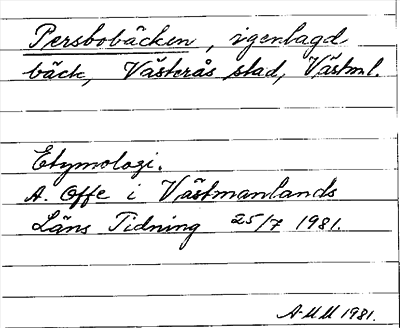 Persbobäcken, igenlagd
bäck, Västerås stad, Västml.
Etymologi.
A. Offe i Västmanlands
Läns Tidning 25/7 1981.
A-MM 1981.